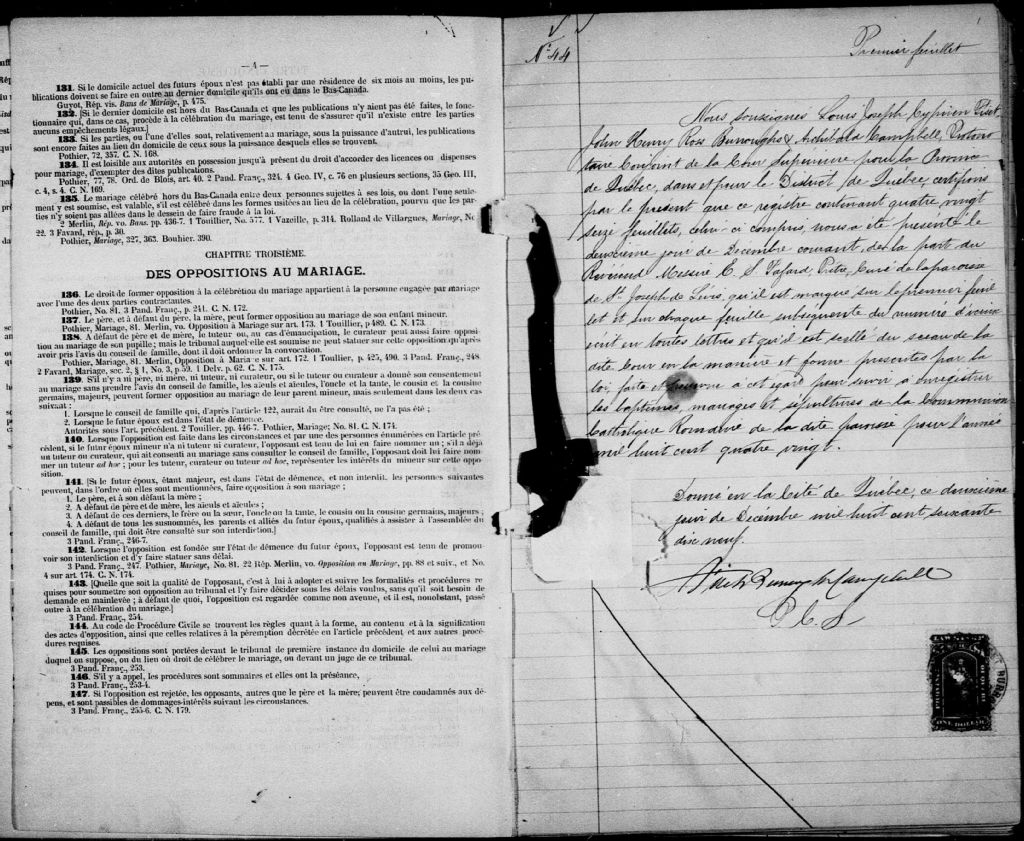 — 4 —
131. Si le domicile actuel des futurs époux n'est pas établi par une résidence de six mois au moins, les pu-
blications doivent se faire en outre au dernier domicile qu'ils ont eu dans le Bas-Canada.
Guyot, Rép. vis. Bans de Mariage, p. 475.
132. [Si le dernier domicile est hors du Bas-Canada et que les publications n'y aient pas été faites, le fonc-
tionnaire qui, dans ce cas, procède à la célébration du mariage, est tenu de s'assurer qu'il n'existe entre les parties
aucuns empêchements légaux.]
133. Si les parties, ou l'une d'elles sont, relativement au mariage, sous la puissance d'autrui, les publications
sont encore faites au lieu du domicile de ceux sous la puissance desquels elles se trouvent.
Pothier, 72, 357. C. N. 168.
134. Il est loisible aux autorités en possession jusqu'à présent du droit d'accorder des licences ou dispenses
pour mariage, d'exempter des dites publications.
Pothier, 77, 78. Ord. de Blois, art. 40. 2 Pand. Franç., 324. 4 Geo. IV, c. 76 en plusieurs sections, 35 Geo. III,
c. 4, s. 4. C. N. 169.
135. Le mariage célébré hors du Bas-Canada entre deux personnes sujettes à ses lois, ou dont l'une seule-
ment y est soumise, est valable, s'il est célébré dans les formes usitées au lieu de la célébration, pourvu que les par-
ties n'y soient pas allées dans le dessein de faire fraude à la loi.
2 Merlin, Rép. vo. Bans. pp. 436-7. 1 Touillier, No. 577. 1 Vazeille, p. 314. Rolland de Villargues, Mariage, No.
22. 3 Favard, rép., p. 30.
Pothier, Mariage, 327, 363. Bouhier. 390.
CHAPITRE TROISIÈME.
DES OPPOSITIONS AU MARIAGE.
136. Le droit de former opposition à la célébrétion du mariage appartient à la personne engagée par mariage
avec l'une des deux parties contractantes.
Pothier, No. 81. 3 Pand. Franç., p. 241. C. N. 172.
137. Le père, et à défaut du père, la mère, peut former opposition au mariage de son enfant mineur.
Pothier, Mariage, 81. Merlin, vo. Opposition à Mariage sur art. 173. 1 Touillier, p 489. C. N. 173.
138. A défaut de père et de mère, le tuteur ou, au cas d'émancipation, le curateur peut aussi faire opposi-
tion au mariage de son pupille; mais le tribunal auquel elle est soumise ne peut statuer sur cette opposition qu'après
avoir pris l'avis du conseil de famille, dont il doit ordonner la convocation.
Pothier, Mariage, 81. Merlin, Opposition à Maria e sur art. 172. 1 Toullier, p. 425, 490. 3 Pand. Franç., 248.
2 Favard, Mariage, sec. 2, § 1, No. 3, p. 59. 1 Delv. p. 62. C. N. 175.
139. S'il n'y a ni père, ni mère, ni tuteur, ni curateur, ou si le tuteur ou curateur a donné son consentement
au mariage sans prendre l'avis du conseil de famille, les aïeuls et aïeules, l'oncle et la tante, le cousin et la cousine
germains, majeurs, peuvent former opposition au mariage de leur parent mineur, mais seulement dans les deux cas
suivant :
1. Lorsque le conseil de famille qui, d'après l'article 122, aurait du être consulté, ne l'a pas été ;
2. Lorsque le futur époux est dans l'état de démence.
Autorités sous l'art. précédent. 2 Touiller, pp. 446-7. Pothier, Mariage; No. 81. C. N. 174.
140. Lorsque l'opposition est faite dans les circonstances et par une des personnes énumérées en l'article pré-
cédent, si le futur époux mineur n'a ni tuteur ni curateur, l'opposant est tenu de lui en faire nommer un ; s'il a déjà
un tuteur ou curateur, qui ait consenti au mariage sans consulter le conseil de famille, l'opposant doit lui faire nom-
mer un tuteur ad hoc ; pour les tuteur, curateur ou tuteur ad hoc, représenter les intérêts du mineur sur cette oppo-
sition.
141. [Si le futur époux, étant majeur, est dans l'état de démence, et non interdit, les personnes suivantes
peuvent, dans l'ordre où elles sont mentionnées, faire opposition à son mariage ;
1. Le père, et à son défaut la mère ;
2. A défaut de père et de mère, les aïeuls et aïeules ;
3. A défaut de ces derniers, le frère ou la sœur, l'oncle ou la tante, le cousin ou la cousine germains, majeurs ;
4. A défaut de tous les susnommés, les parents et alliés du futur époux, qualifiés à assister à l'assemblée du
conseil de famille, qui doit être consulté sur son interdiction.]
3 Pand. Franç., 246-7.
142. Lorsque l'opposition est fondée sur l'état de démence du futur époux, l'opposant est tenu de promou-
voir son interdiction et d'y faire statuer sans délai.
3 Pand. Franç., 247. Pothier, Mariage, No. 81. 22 Rép. Merlin, vo. Opposition au Mariage, pp. 88 et suiv., et No.
4 sur art. 174. C. N. 174.
143. [Quelle que soit la qualité de l'opposant, c'est à lui à adopter et suivre les formalités et procédures re
quises pour soumettre son opposition au tribunal et l'y faire décider sous les délais voulus, sans qu'il soit besoin de
demande en mainlevée ; à défaut de quoi, l'opposition est regardée comme non avenue, et il est, nonobstant, passé
outre à la célébration du mariage.]
3 Pand. Franç., 254.
144. Au code de Procédure Civile se trouvent les règles quant à la forme, au contenu et à la signification
des actes d'opposition, ainsi que celles relatives à la péremption décrétée en l'article précédent et aux autres procé-
dures requises.
145. Les oppositions sont portées devant le tribunal de première instance du domicile de celui au mariage
duquel on suppose, ou du lieu où droit de célébrer le mariage, ou devant un juge de ce tribunal.
3 Pand. Franç., 253.
146. S'il y a appel, les procédures sont sommaires et elles ont la préséance,
3 Pand. Franç., 253-4.
147. Si l'opposition est rejetée, les opposants, autres que le père et la mère, peuvent être condamnés aux dé-
pens, et sont passibles de dommages-intérêts suivant les circonstances.
3 Pand. Franç., 255-6. C. N. 179.
No 44
Premier feuillet
Nous soussignés Louis Joseph Cyprien Fiset
John Henry Ross Burroughs & Archibald Campbell, Protono
taire Conjoint de la Cour Supérieure pour la Province
de Québec, dans et pour le District de Québec, certifions
par le présent que ce registre contenant quatre vingt
seize feuillets, celui-ci compris, nous a été présenté le
deuxième jour de Décembre courant, de la part du
Révérend Messire E. S. Fafard Prêtre, Curé de la paroisse
de St Joseph de Lévis, qu'il est marqué sur le premier feuil
let et sur chaque feuille subséquente du numéro d'icieux
écrit en toutes lettres et qu'il est scellé du sceau de la
dite Cour en la manière et forme prescrites par la
loi, faite et pourvue à cet égard pour servir à enregistrer
les baptêmes, mariages et sépultures de la Communion
Catholique Romaine de la dite paroisse pour l'année
mil huit cent quatre vingt.
Donné en la Cité de Québec, ce deuxième
jour de Décembre mil huit cent soixante
dix neuf.
Fiset Burroughs Campbell
P. C. S.
LAW STAMP
PROVINCE
OF QUEBEC
ONE DOLLAR